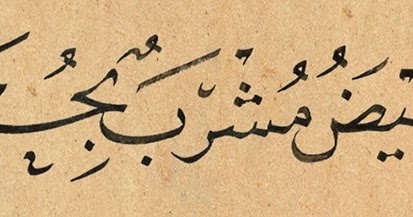 بْيَضُ مُشْرَبٌ بِحُمـ